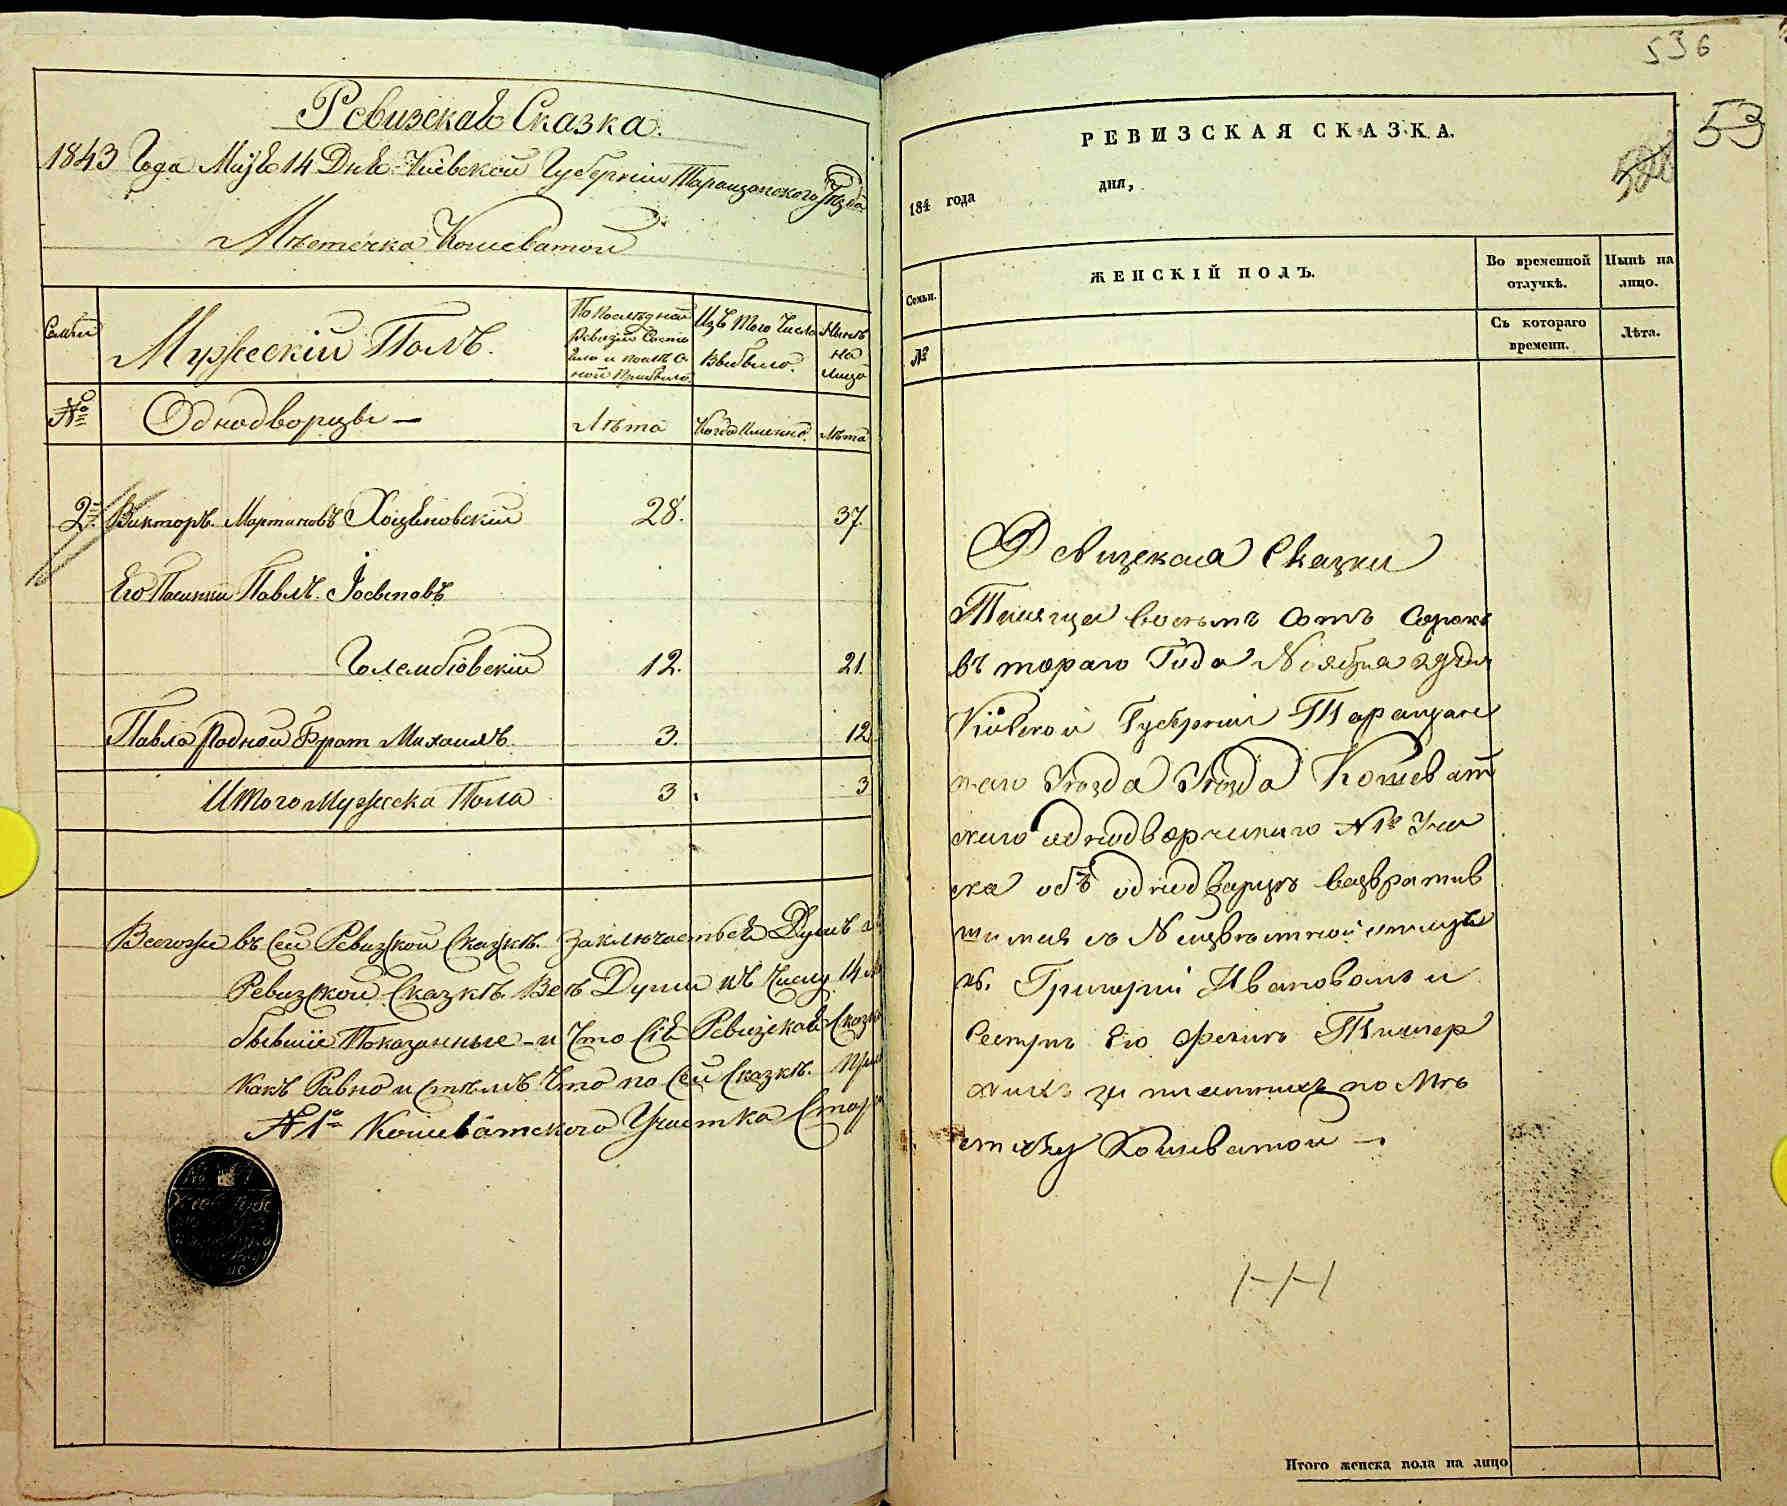 Ревизская Сказка.
1843 Года Маія 14 Дня Кіевской Губерніи Таращанского Уѣзда
Мѣстечка Кошеватой
Семьи
Мужескій Полъ.
По Последной
Ревизіи Состо
яло и после о
ной прибыло
Изъ того Числа
Выбыло.
Нынѣ
на
Лицо
№
Однодворцы —
Лѣта
Когда именно.
Лѣта
2. Викторъ Мартиновъ 28. 37.
Его Пасинки Павлъ Іосиповъ
Голембіовскій 12. 21.
Павла Родной Брат Михаилъ 3. 12
Итого Мужеска Пола 3. 3
Всегоже въ сей Ревизской Сказкѣ заключается Душъ
Ревизской Сказкѣ Всѣ Души къ Числу 14
бывшіе Показанные и Что Сія Ревизская Сказка
Какъ Равно и Стѣмъ Что по Сей Сказкѣ
№ 1о Кошеватского Участка
536
53
РЕВИЗСКАЯ СКАЗКА.
184 года дня,
Семьи.
№
ЖЕНСКІЙ ПОЛЪ.
Во временной
отлучкѣ.
Съ котораго
времени.
Нынѣ на
лицо.
Лѣта.
Ревизская Сказка
Тисяща восемъ Сотъ Сорокъ
въ тораго Года Ноября дня
Кіевской Губерніи Таращанс
каго Уѣзда Уѣзда Кошеват
скаго однодворческаго № 1о Учас
ка объ однодворцѣ вазвратив
шимся съ Неизвѣстной отлуч
Григорій Ивановомъ и
Сестрѣ Его
записанних по Мѣ
стечку Кошеватой —
Итого женска пола на лицо